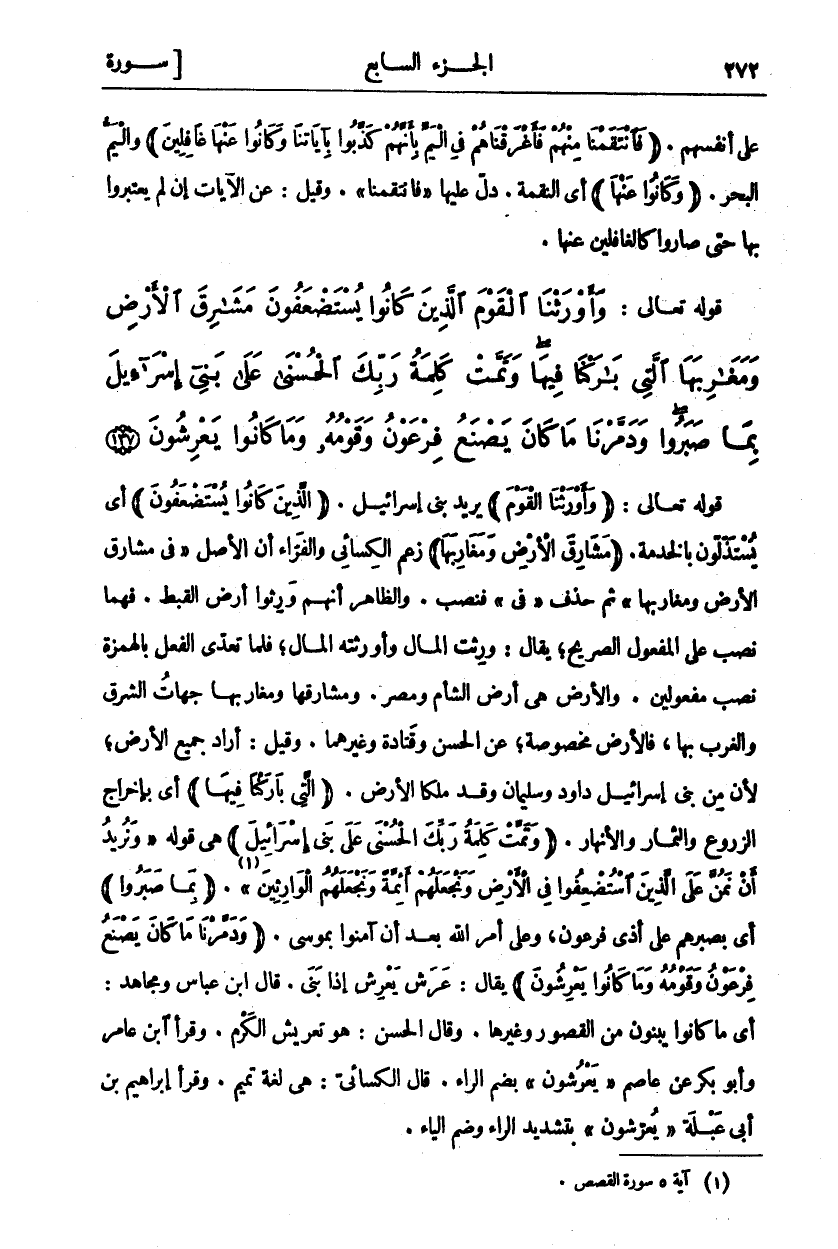 ٢٧٢ الجـزء السابع [ سـورة
على أنفسهم . ﴿ فَٱنْتَقَمْنَا مِنْهُمْ فَأَغْرَقْنَاهُمْ فِى الْيَمِّ بِأَنَّهُمْ كَذَّبُوا بِآيَاتِنَا وَكَانُوا عَنْهَا غَافِلِينَ ﴾ واليمُّ
البحر . ﴿ وَكَانُوا عَنْهَا ﴾ أى النقمة . دلّ عليها «فانتقمنا» . وقيل : عن الآيات إن لم يعتبروا
بها حتى صاروا كالغافلين عنها .
قوله تعـالى : وَأَوْرَثْنَا ٱلْقَوْمَ ٱلَّذِينَ كَانُوا يُسْتَضْعَفُونَ مَشَٰرِقَ ٱلْأَرْضِ
وَمَغَٰرِبَهَا ٱلَّتِي بَٰرَكْنَا فِيهَا ۖ وَتَمَّتْ كَلِمَةُ رَبِّكَ ٱلْحُسْنَىٰ عَلَىٰ بَنِيٓ إِسْرَٰٓءِيلَ
بِمَا صَبَرُوا ۖ وَدَمَّرْنَا مَا كَانَ يَصْنَعُ فِرْعَوْنُ وَقَوْمُهُۥ وَمَا كَانُوا يَعْرِشُونَ ﴿١٣٧﴾
قوله تعـالى : ﴿ وَأَوْرَثْنَا الْقَوْمَ ﴾ يريد بنى إسرائيـل . ﴿ الَّذِينَ كَانُوا يُسْتَضْعَفُونَ ﴾ أى
يُسْتَذَلّون بالخدمة . ﴿مَشَارِقَ الْأَرْضِ وَمَغَارِبَهَا﴾ زعم الكسائى والفرّاء أن الأصل « فى مشارق
الأرض ومغاربها » ثم حذف « فى » فنصب . والظاهر أنهـم وَرِثوا أرض القبط . فهما
نصب على المفعول الصريح؛ يقال : ورثت المـال وأورثته المـال؛ فلما تعدّى الفعل بالهمزة
نصب مفعولين . والأرض هى أرض الشأم ومصر . ومشارقها ومغاربهـا جهاتُ الشرق
والغرب بها ، فالأرض مخصوصة؛ عن الحسن وقتادة وغيرهما . وقيل : أراد جميع الأرض؛
لأن مِن بنى إسرائيـل داود وسليمان وقـد ملكا الأرض . ﴿ الَّتِى بَارَكْنَا فِيهَـا ﴾ أى بإخراج
الزروع والثمـار والأنهار . ﴿ وَتَمَّتْ كَلِمَةُ رَبِّكَ الْحُسْنَى عَلَى بَنِى إِسْرَائِيلَ ﴾ هى قوله « وَنُرِيدُ
أَنْ نَمُنَّ عَلَى الَّذِينَ ٱسْتُضْعِفُوا فِى الْأَرْضِ وَنَجْعَلَهُمْ أَئِمَّةً وَنَجْعَلَهُمُ الْوَارِثِينَ (١)» . ﴿ بِمَـا صَبَرُوا ﴾
أى بصبرهم على أذى فرعون، وعلى أمر الله بعـد أن آمنوا بموسى . ﴿ وَدَمَّرْنَا مَا كَانَ يَصْنَعُ
فِرْعَوْنُ وَقَوْمُهُ وَمَا كَانُوا يَعْرِشُونَ ﴾ يقال : عَرَش يَعْرِش إذا بَنَى . قال ابن عباس ومجاهد :
أى ما كانوا يبنون من القصور وغيرها . وقال الحسن : هو تعريش الكَرْم . وقرأ ٱبن عامر
وأبو بكر عن عاصم « يَعْرُشون » بضم الراء . قال الكسائىّ : هى لغة تميم . وقرأ إبراهيم بن
أبى عَبْـلَة « يُعرّشون » بتشديد الراء وضم الياء .
(١) آية ٥ سورة القصص .